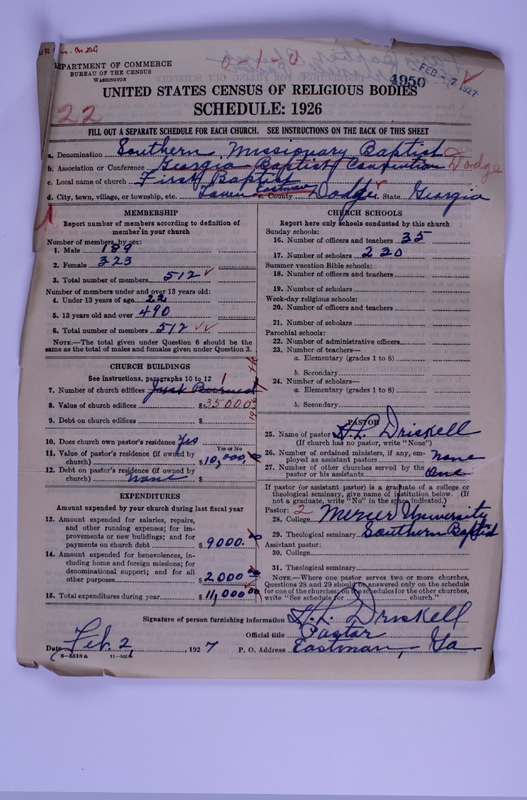 0-1-0
DEPARTMENT OF COMMERCE
BUREAU OF THE CENSUS
WASHINGTON
4950
FEB -7 1927
UNITED STATES CENSUS OF RELIGIOUS BODIES
22
SCHEDULE: 1926
FILL OUT A SEPARATE SCHEDULE FOR EACH CHURCH. SEE INSTRUCTIONS ON THE BACK OF THIS SHEET
a. Denomination Southern Missionary Baptist
b. Association or Conference Georgia Baptist Convention Dodge
c. Local name of church First Baptist
d. City, town, village, or township, etc. Town Eastman County Dodge State Georgia
MEMBERSHIP
Report number of members according to definition of
member in your church
Number of members by sex:
1. Male 189
2. Female 323
3. Total number of members 512
Number of members under and over 13 years old:
4. Under 13 years of age 22
5. 13 years old and over 490
6. Total number of members 512
NOTE.—The total given under Question 6 should be the
same as the total of males and females given under Question 3.
CHURCH BUILDINGS
See instructions, paragraphs 10 to 12
7. Number of church edifices Just Burned 1
8. Value of church edifices $35000
9. Debt on church edifices $
10. Does church own pastor's residence? Yes
Yes or No
11. Value of pastor's residence (if owned by
church) $10,000.00
12. Debt on pastor's residence (if owned by
church) none $
EXPENDITURES
Amount expended by your church during last fiscal year
13. Amount expended for salaries, repairs,
and other running expenses; for im-
provements or new buildings; and for
payments on church debt $9000.00
14. Amount expended for benevolences, in-
cluding home and foreign missions; for
denominational support; and for all
other purposes $2000.00
15. Total expenditures during year $11,000.00
CHURCH SCHOOLS
Report here only schools conducted by this church
Sunday schools:
16. Number of officers and teachers 35
17. Number of scholars 230
Summer vacation Bible schools:
18. Number of officers and teachers
19. Number of scholars
Week-day religious schools:
20. Number of officers and teachers
21. Number of scholars
Parochial schools:
22. Number of administrative officers
23. Number of teachers—
a. Elementary (grades 1 to 8)
b. Secondary
24. Number of scholars—
a. Elementary (grades 1 to 8)
b. Secondary
PASTOR
25. Name of pastor H. L. Driskell
(If church has no pastor, write "None")
26. Number of ordained ministers, if any, em-
ployed as assistant pastors none
27. Number of other churches served by the
pastor or his assistants One
If pastor (or assistant pastor) is a graduate of a college or
theological seminary, give name of institution below. (If
not a graduate, write "No" in the space indicated.)
Pastor: 2
28. College Mercer University
29. Theological seminary Southern Baptist
Assistant pastor:
30. College
31. Theological seminary
NOTE.—Where one pastor serves two or more churches,
Questions 28 and 29 should be answered only on the schedule
for one of the churches; on the schedules for the other churches,
write "See schedule for church."
Signature of person furnishing information H. L. Driskell
Official title Pastor
Date Feb. 2, 1927 P. O. Address Eastman, Ga
8-5518a